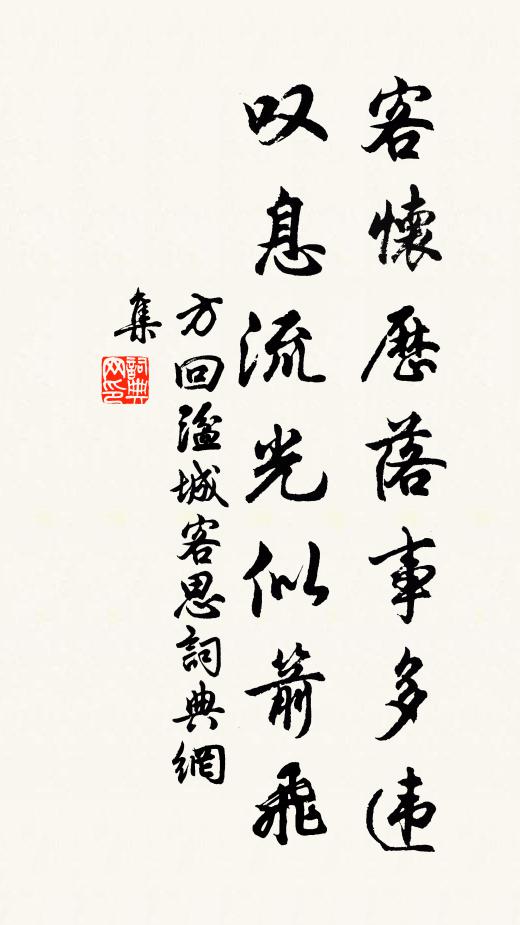 客懷歷落事多违
叹息流光似箭飛
方回湓城客思詞典網
集
詞典网印